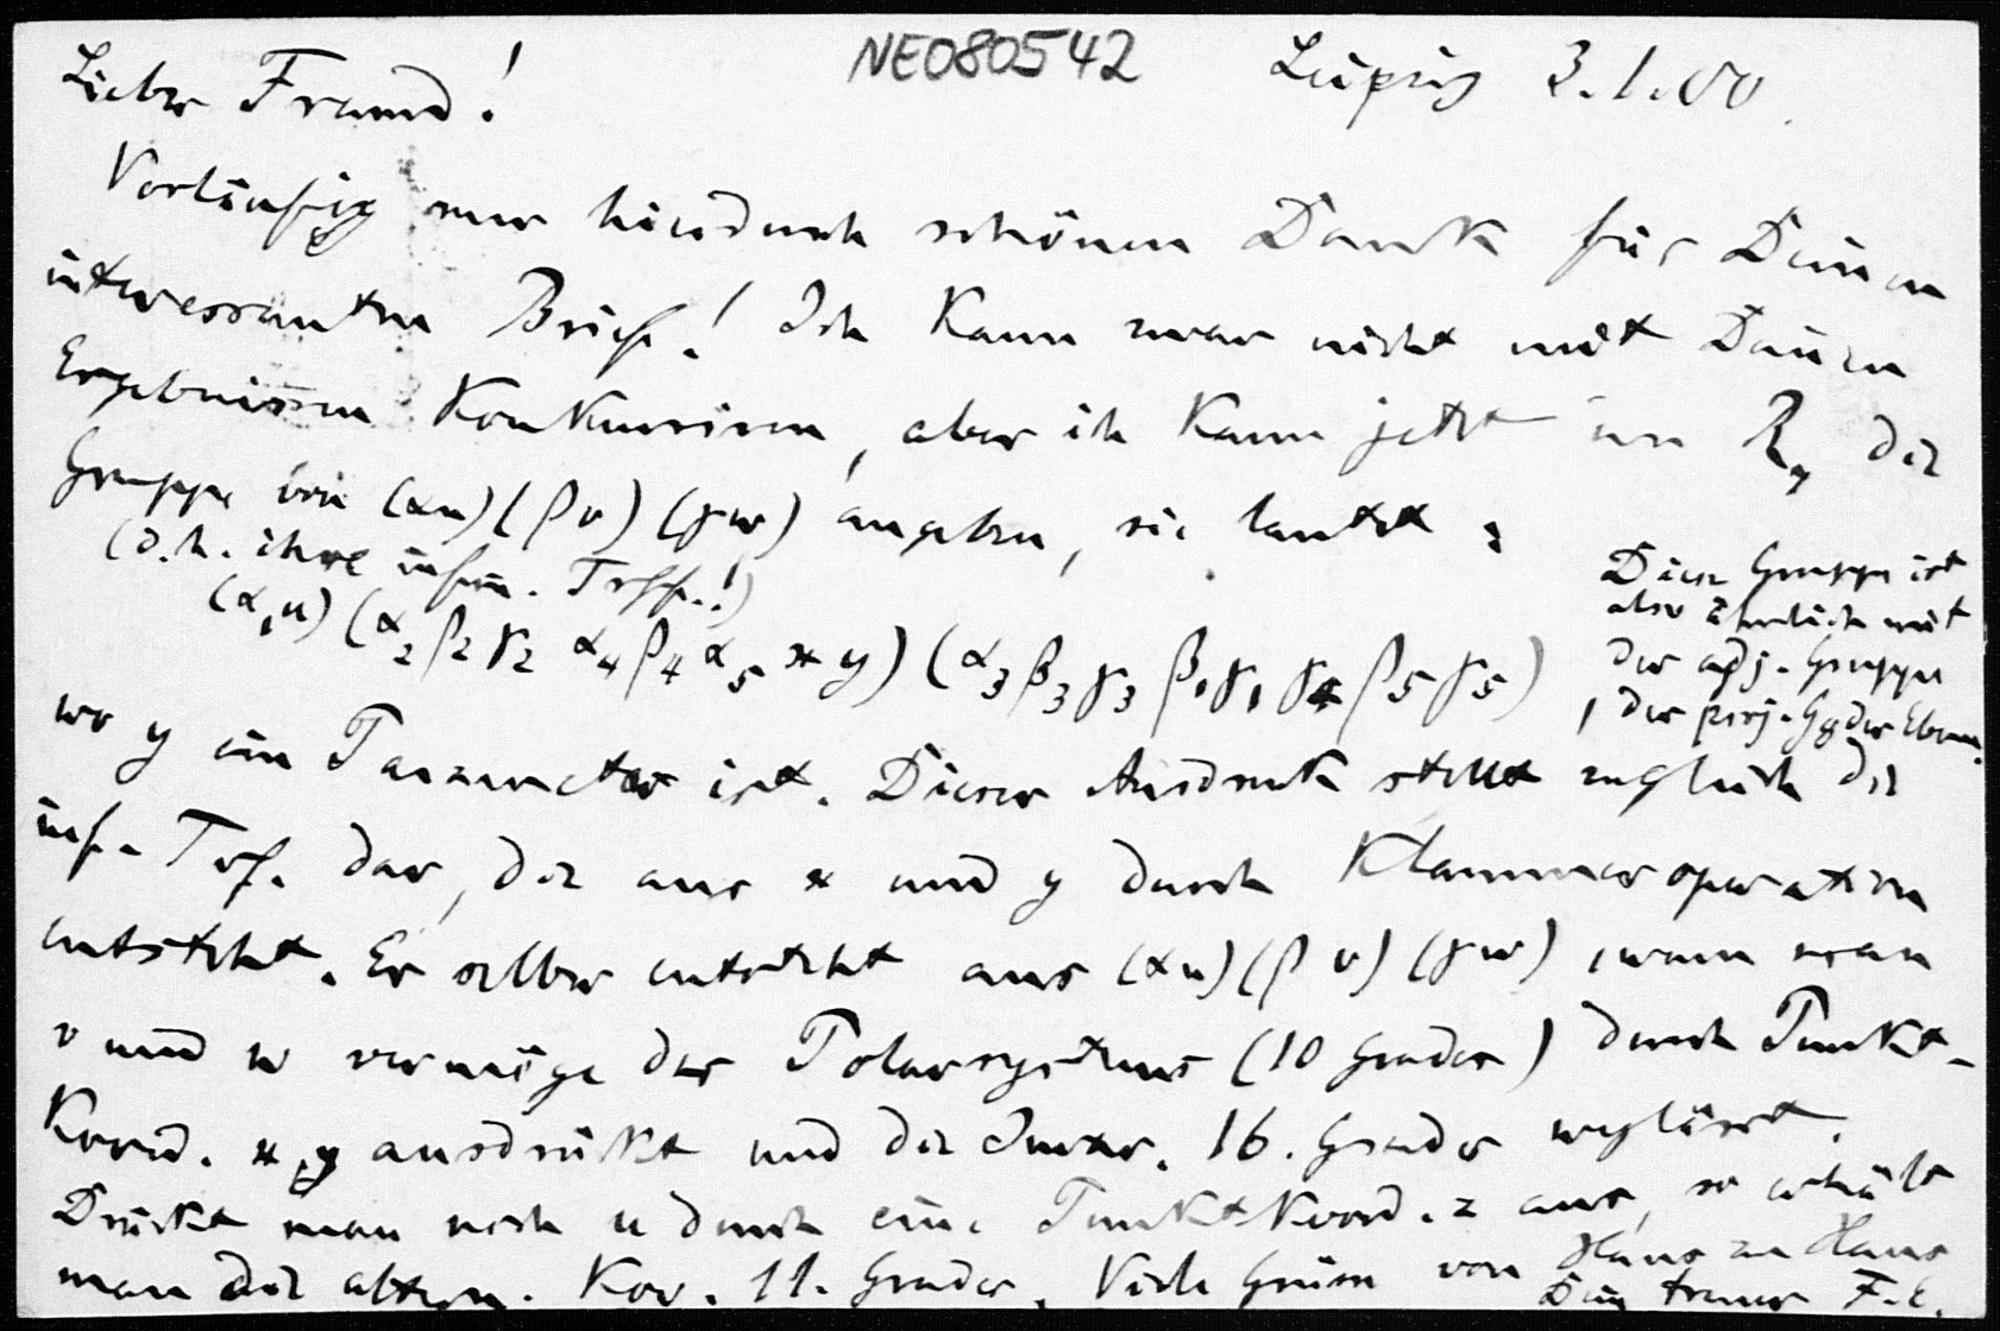 NE080542
Leipzig 3.1.00.
Lieber Freund!
Vorläufig nur hiedurch schönen Dank für Deinen
interessanten Brief! Ich kann zwar nicht mit Deinen
Ergebnissen Konkurriren, aber ich kann jetzt im R₇ die
Gruppe von (αu)(βv)(γw) angeben, sie lautet:
(d.h. ihre infin. Trff.!)
(α₁u)(α₂β₂γ₂ α₄β₄α₅ x y)(α₃β₃γ₃β₁γ₁γ₄β₅γ₅)
Diese Gruppe ist
also ähnlich mit
der adj. Gruppe
der proj. G₈ der Ebene.
wo y ein Parameter ist. Dieser Ausdruck stellt zugleich die
inf. Trf. dar, die aus x und y durch Klammeroperation
entsteht. Er selber entsteht aus (αu)(βv)(γw), wenn man
v und w vermöge des Polarsystems (10 Grades) durch Punkt-
Koord. x, y ausdrückt und die Invar. 16. Grades weglässt.
Drückt man noch u durch eine Punktkoord. z aus, so erhält
man die altern. Kov. 11. Grades. Viele Grüsse von Haus zu Haus
Dein treuer F.E.